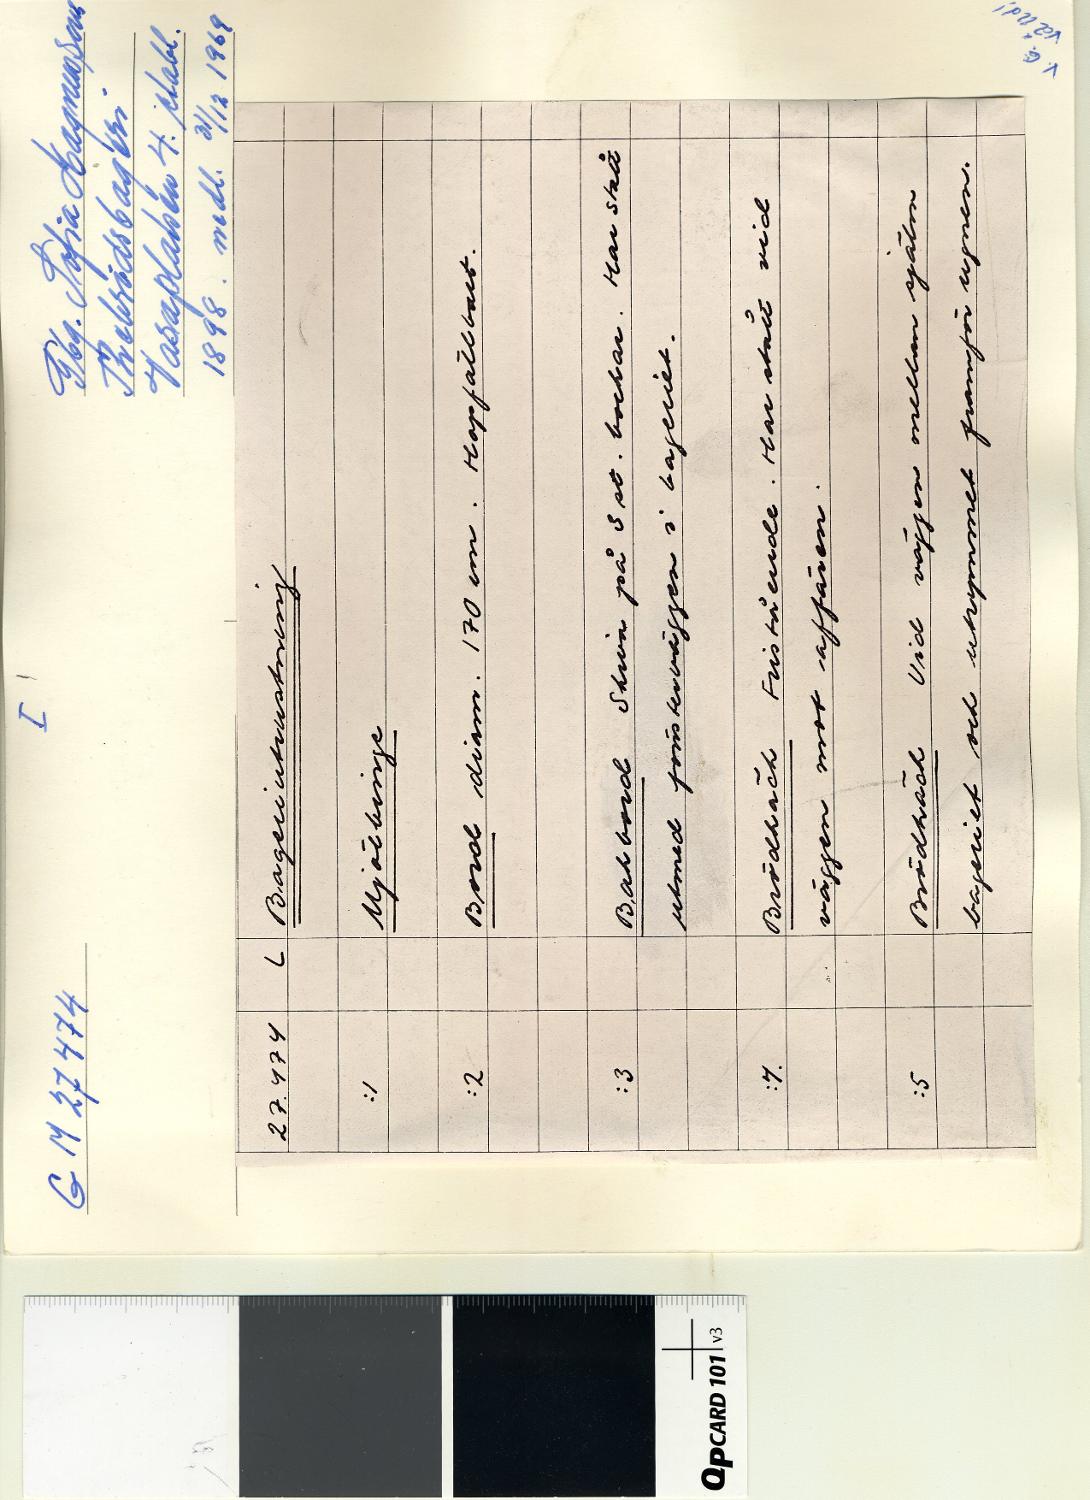 GM 27474
I
Gbg. Sofia Magnussons
Knäbrödsbageri
Vasaplatsen 4. etabl.
1898. nedl. 31/12 1969
V. G.
Vänd!
27.474 L Bageriutrustning
:1 Mjölbinge
:2 Bord diam. 170 cm. Hopfällbart.
:3 Bakbord Skiva på 3 st. bockar. Har stått
utmed fönsterväggen i bageriet.
:4. Brödhäck Fristående. Har stått vid
väggen mot affären.
:5 Brödhäck Vid väggen mellan själva
bageriet och utrymmet framför ugnen.
QpCARD 101 v3